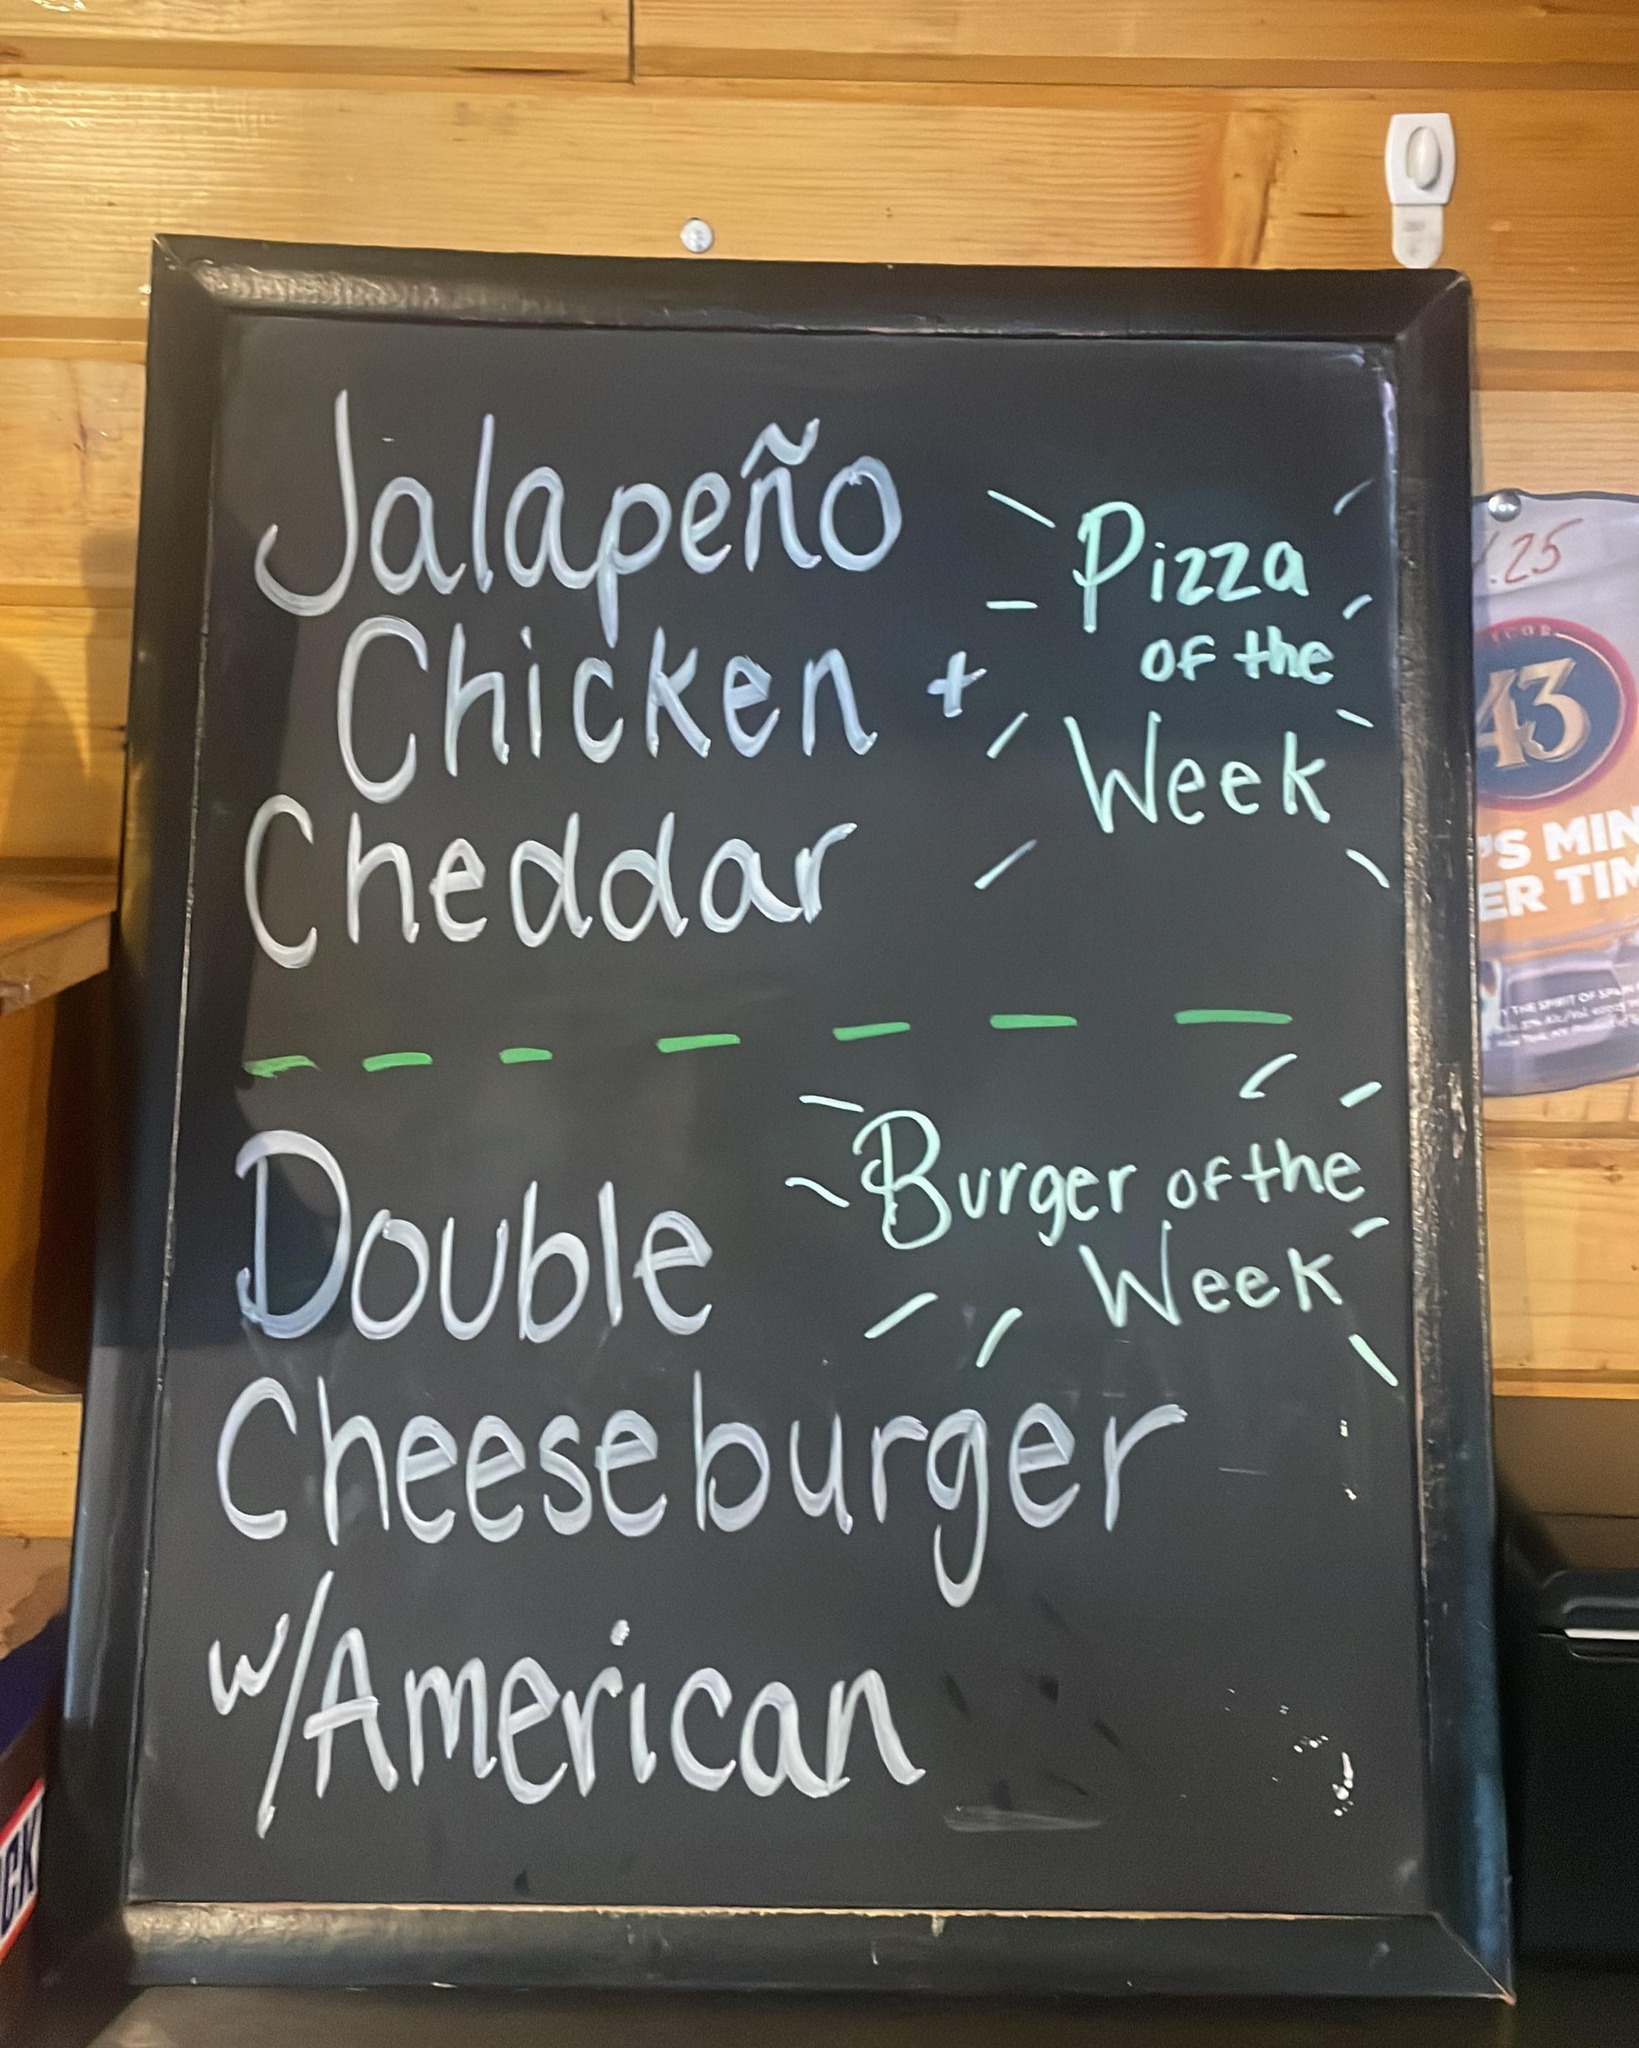 Jalapeño
Chicken +
Cheddar
Pizza
of the
Week
Double
Cheeseburger
w/American
Burger of the
Week
.25
43
'S MIN
ER TIM
THE SPIRIT OF
CK